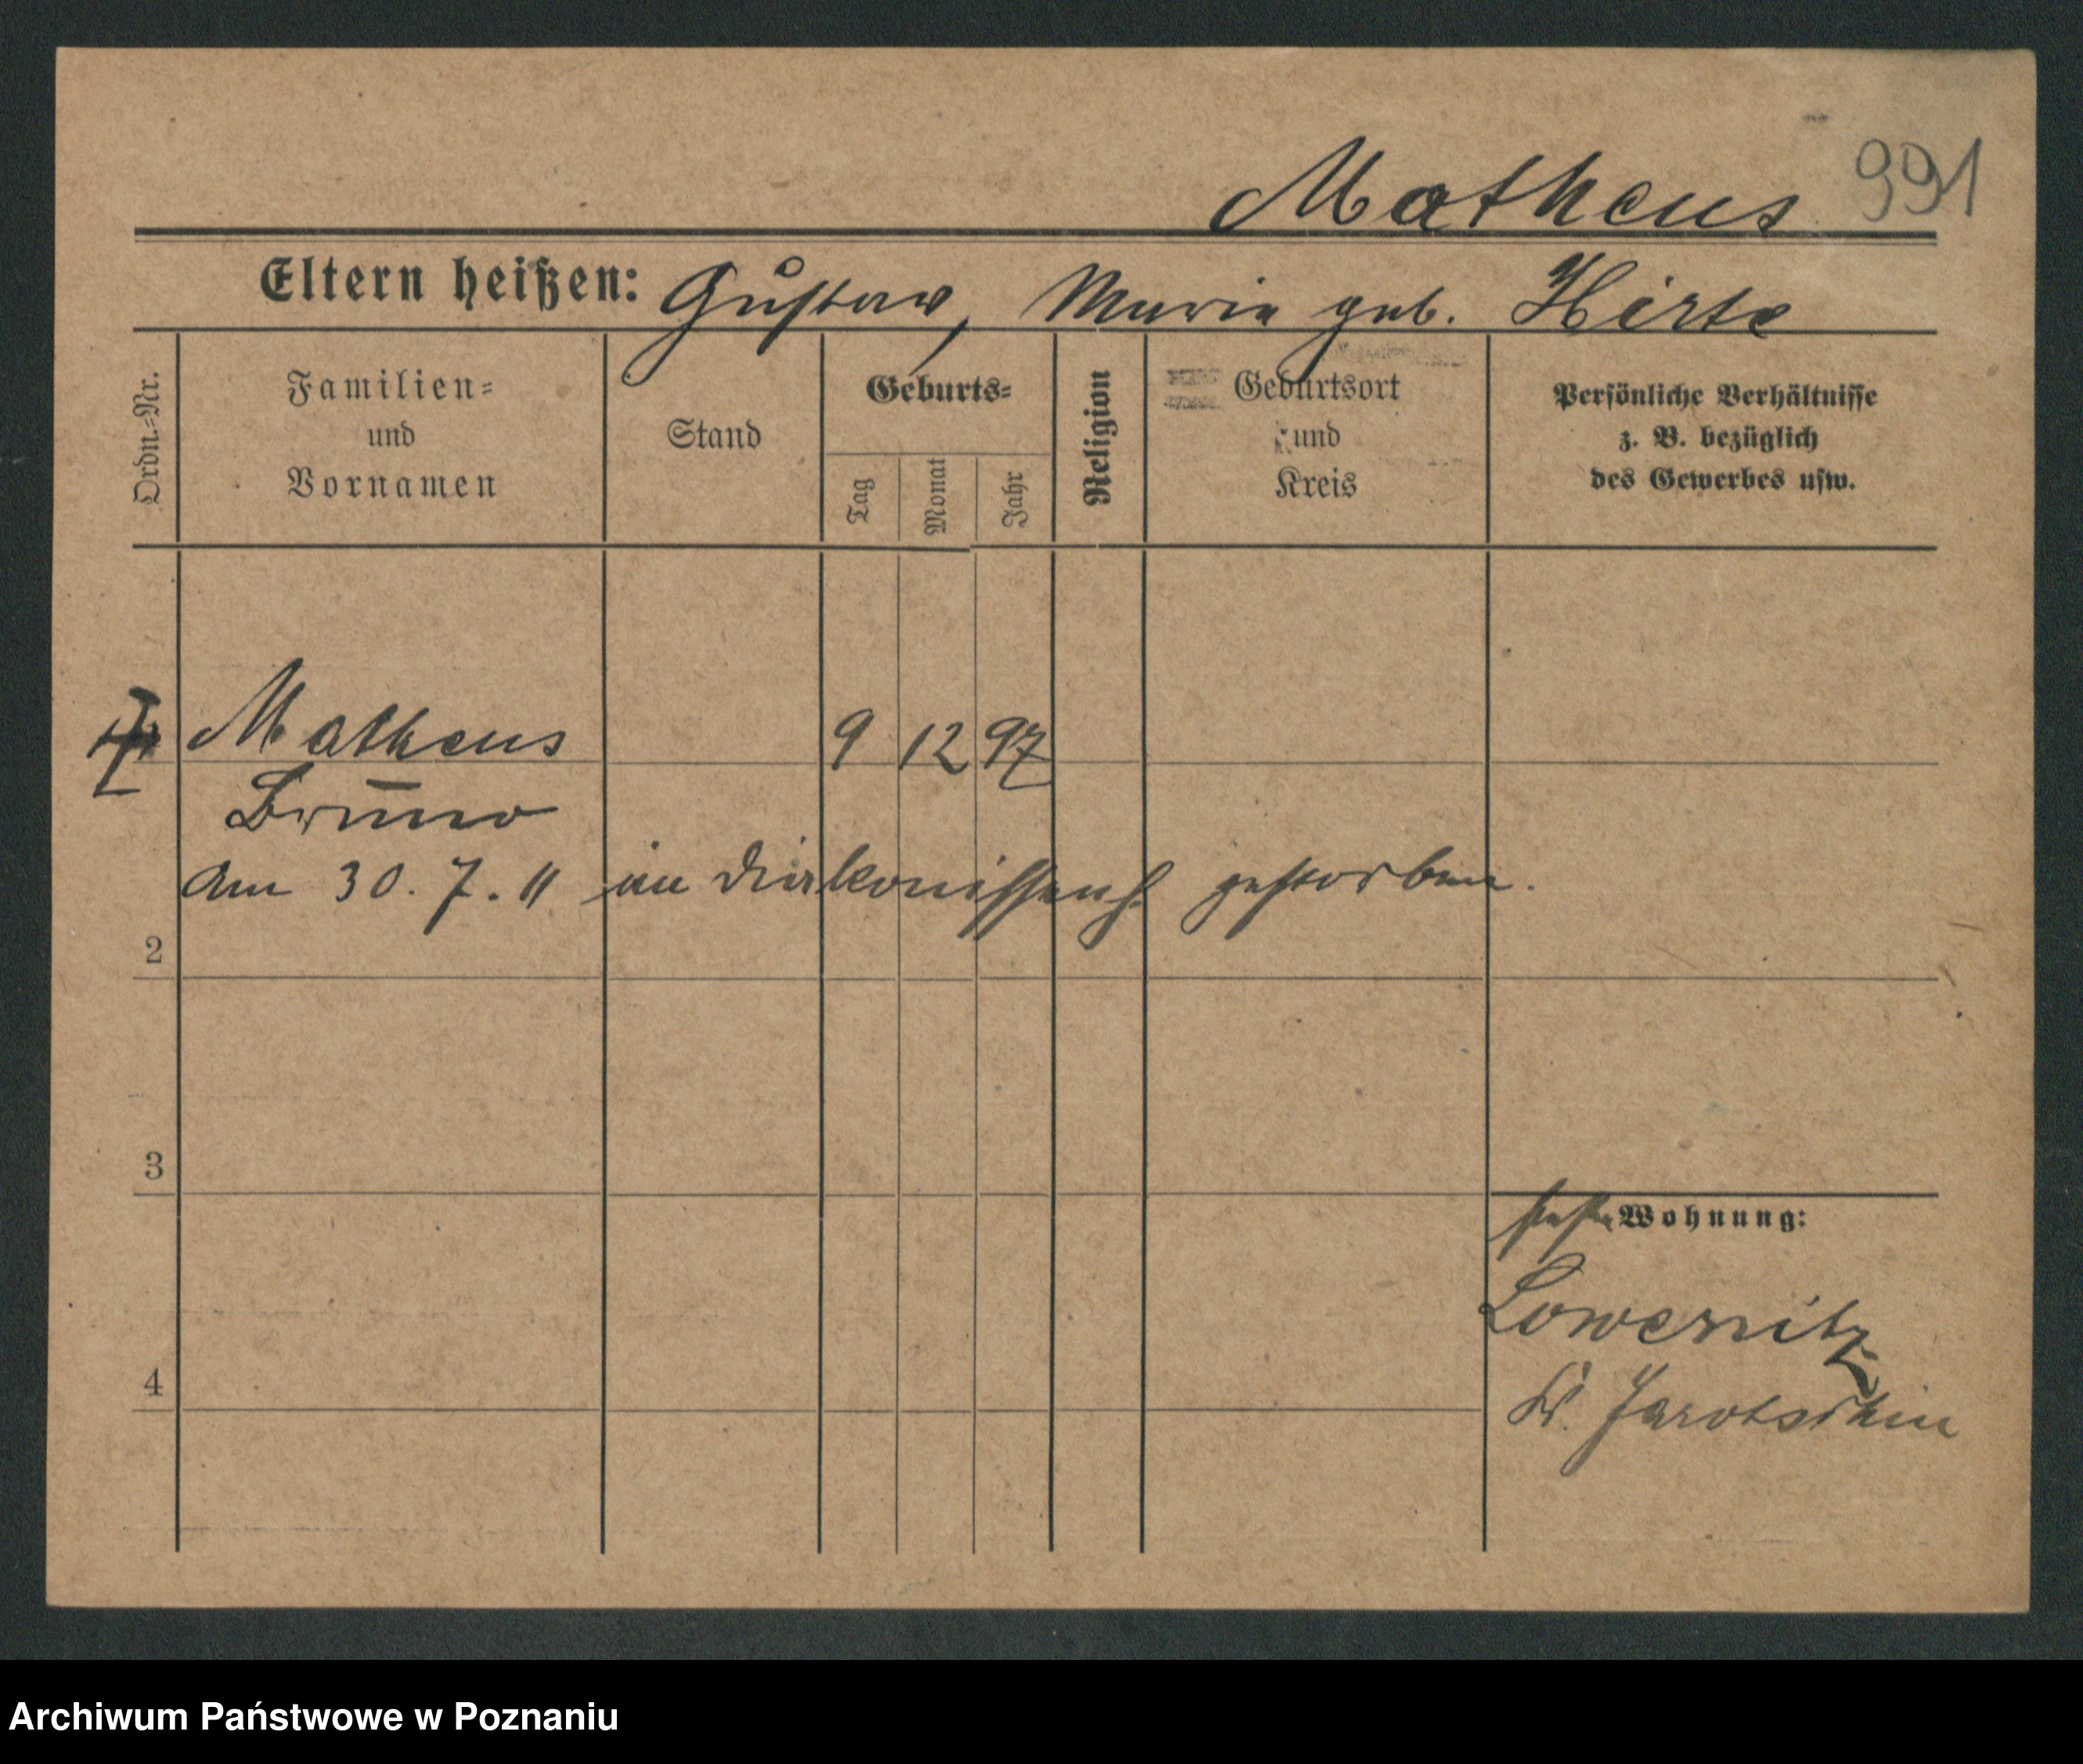 Matheus 991
Eltern heißen: Gustav, Marie geb. Hirte
Ordn.-Nr.
Familien-
und
Vornamen
Stand
Geburts-
Tag
Monat
Jahr
Religion
Geburtsort
und
Kreis
Persönliche Verhältnisse
z. B. bezüglich
des Gewerbes usw.
Matheus 9 12 97
Bruno
am 30. 7. 11 im Diakonissenh. gestorben.
2
3
Wohnung:
Lowenitz
4
Kr. Jarotschin
Archiwum Państwowe w Poznaniu